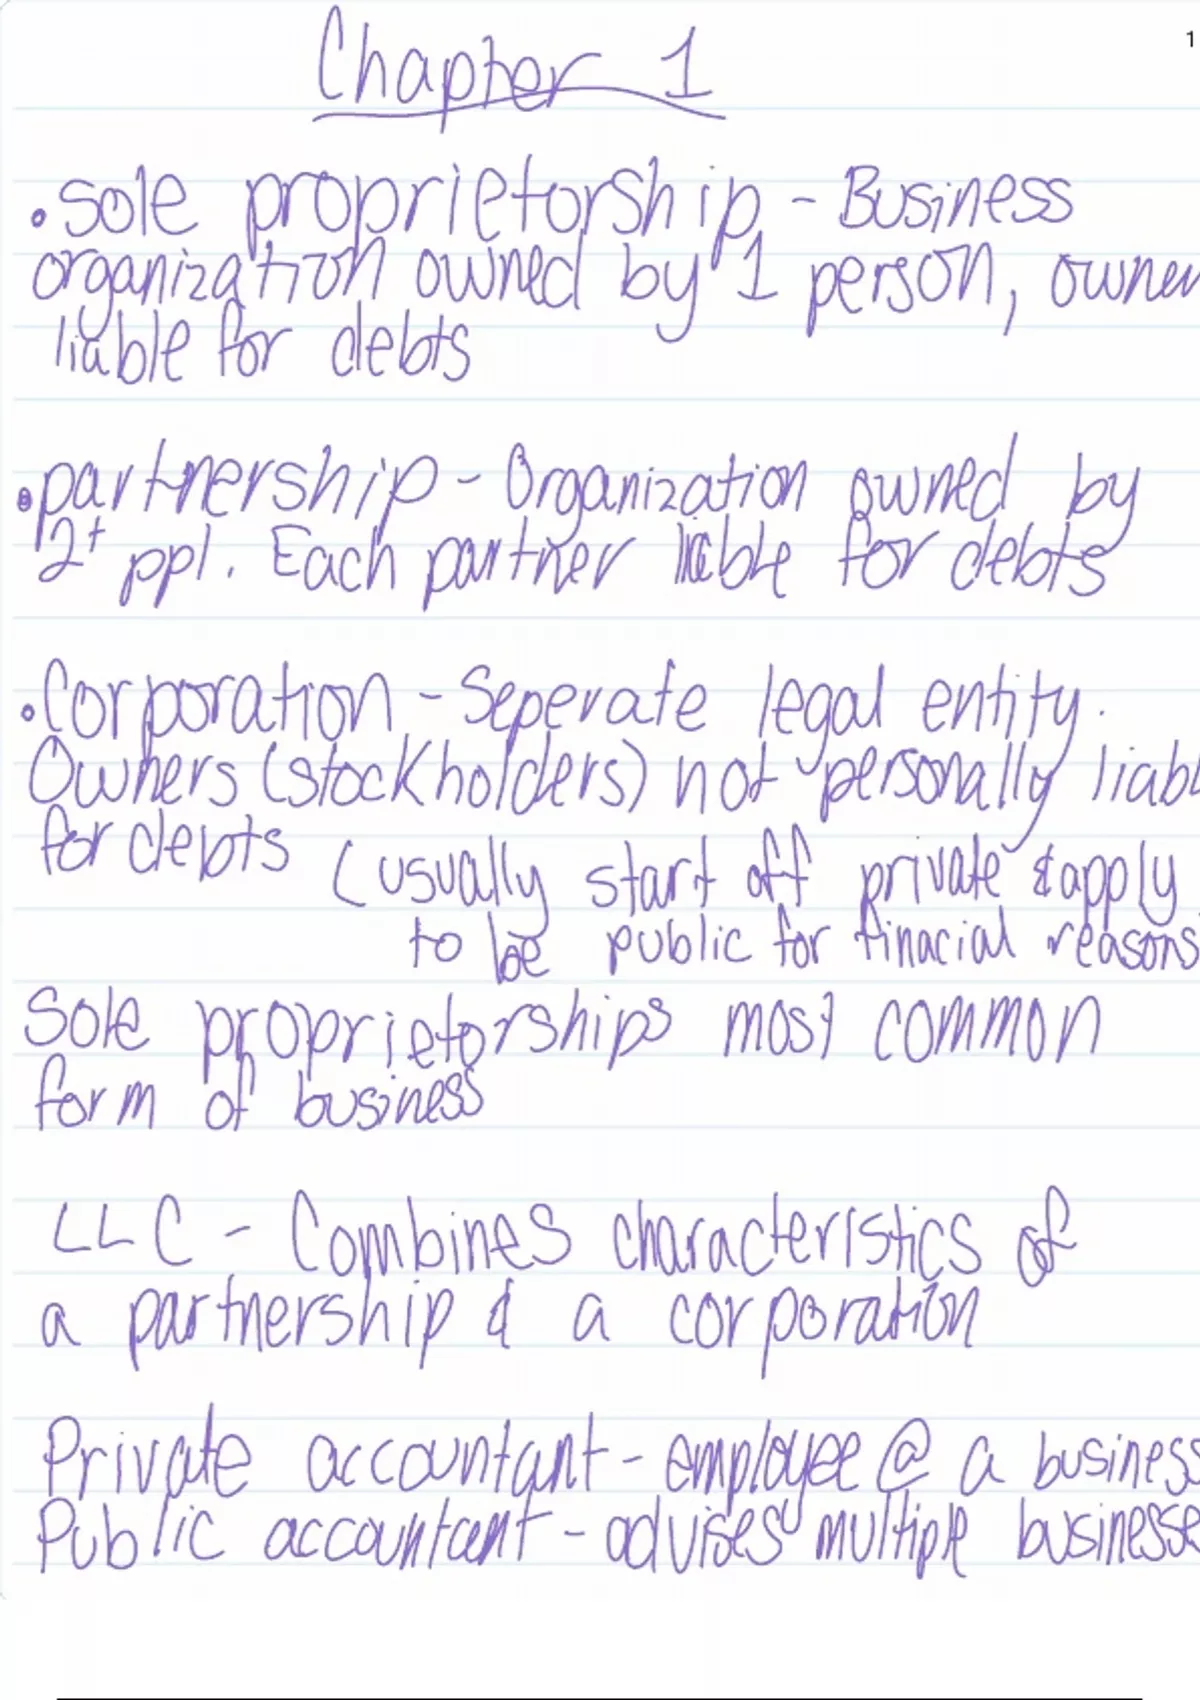 1
Chapter 1
• Sole proprietorship - Business
organization owned by 1 person, owner
liable for debts
• partnership - Organization owned by
2+ ppl. Each partner liable for debts
• Corporation - Seperate legal entity.
Owners (stockholders) not personally liabl
for debts (usually start off private & apply
to be public for finacial reasons
Sole proprietorships most common
form of business
LLC - Combines characteristics of
a partnership & a corporation
Private accountant - employee @ a business
Public accountant - advises multiple businesse